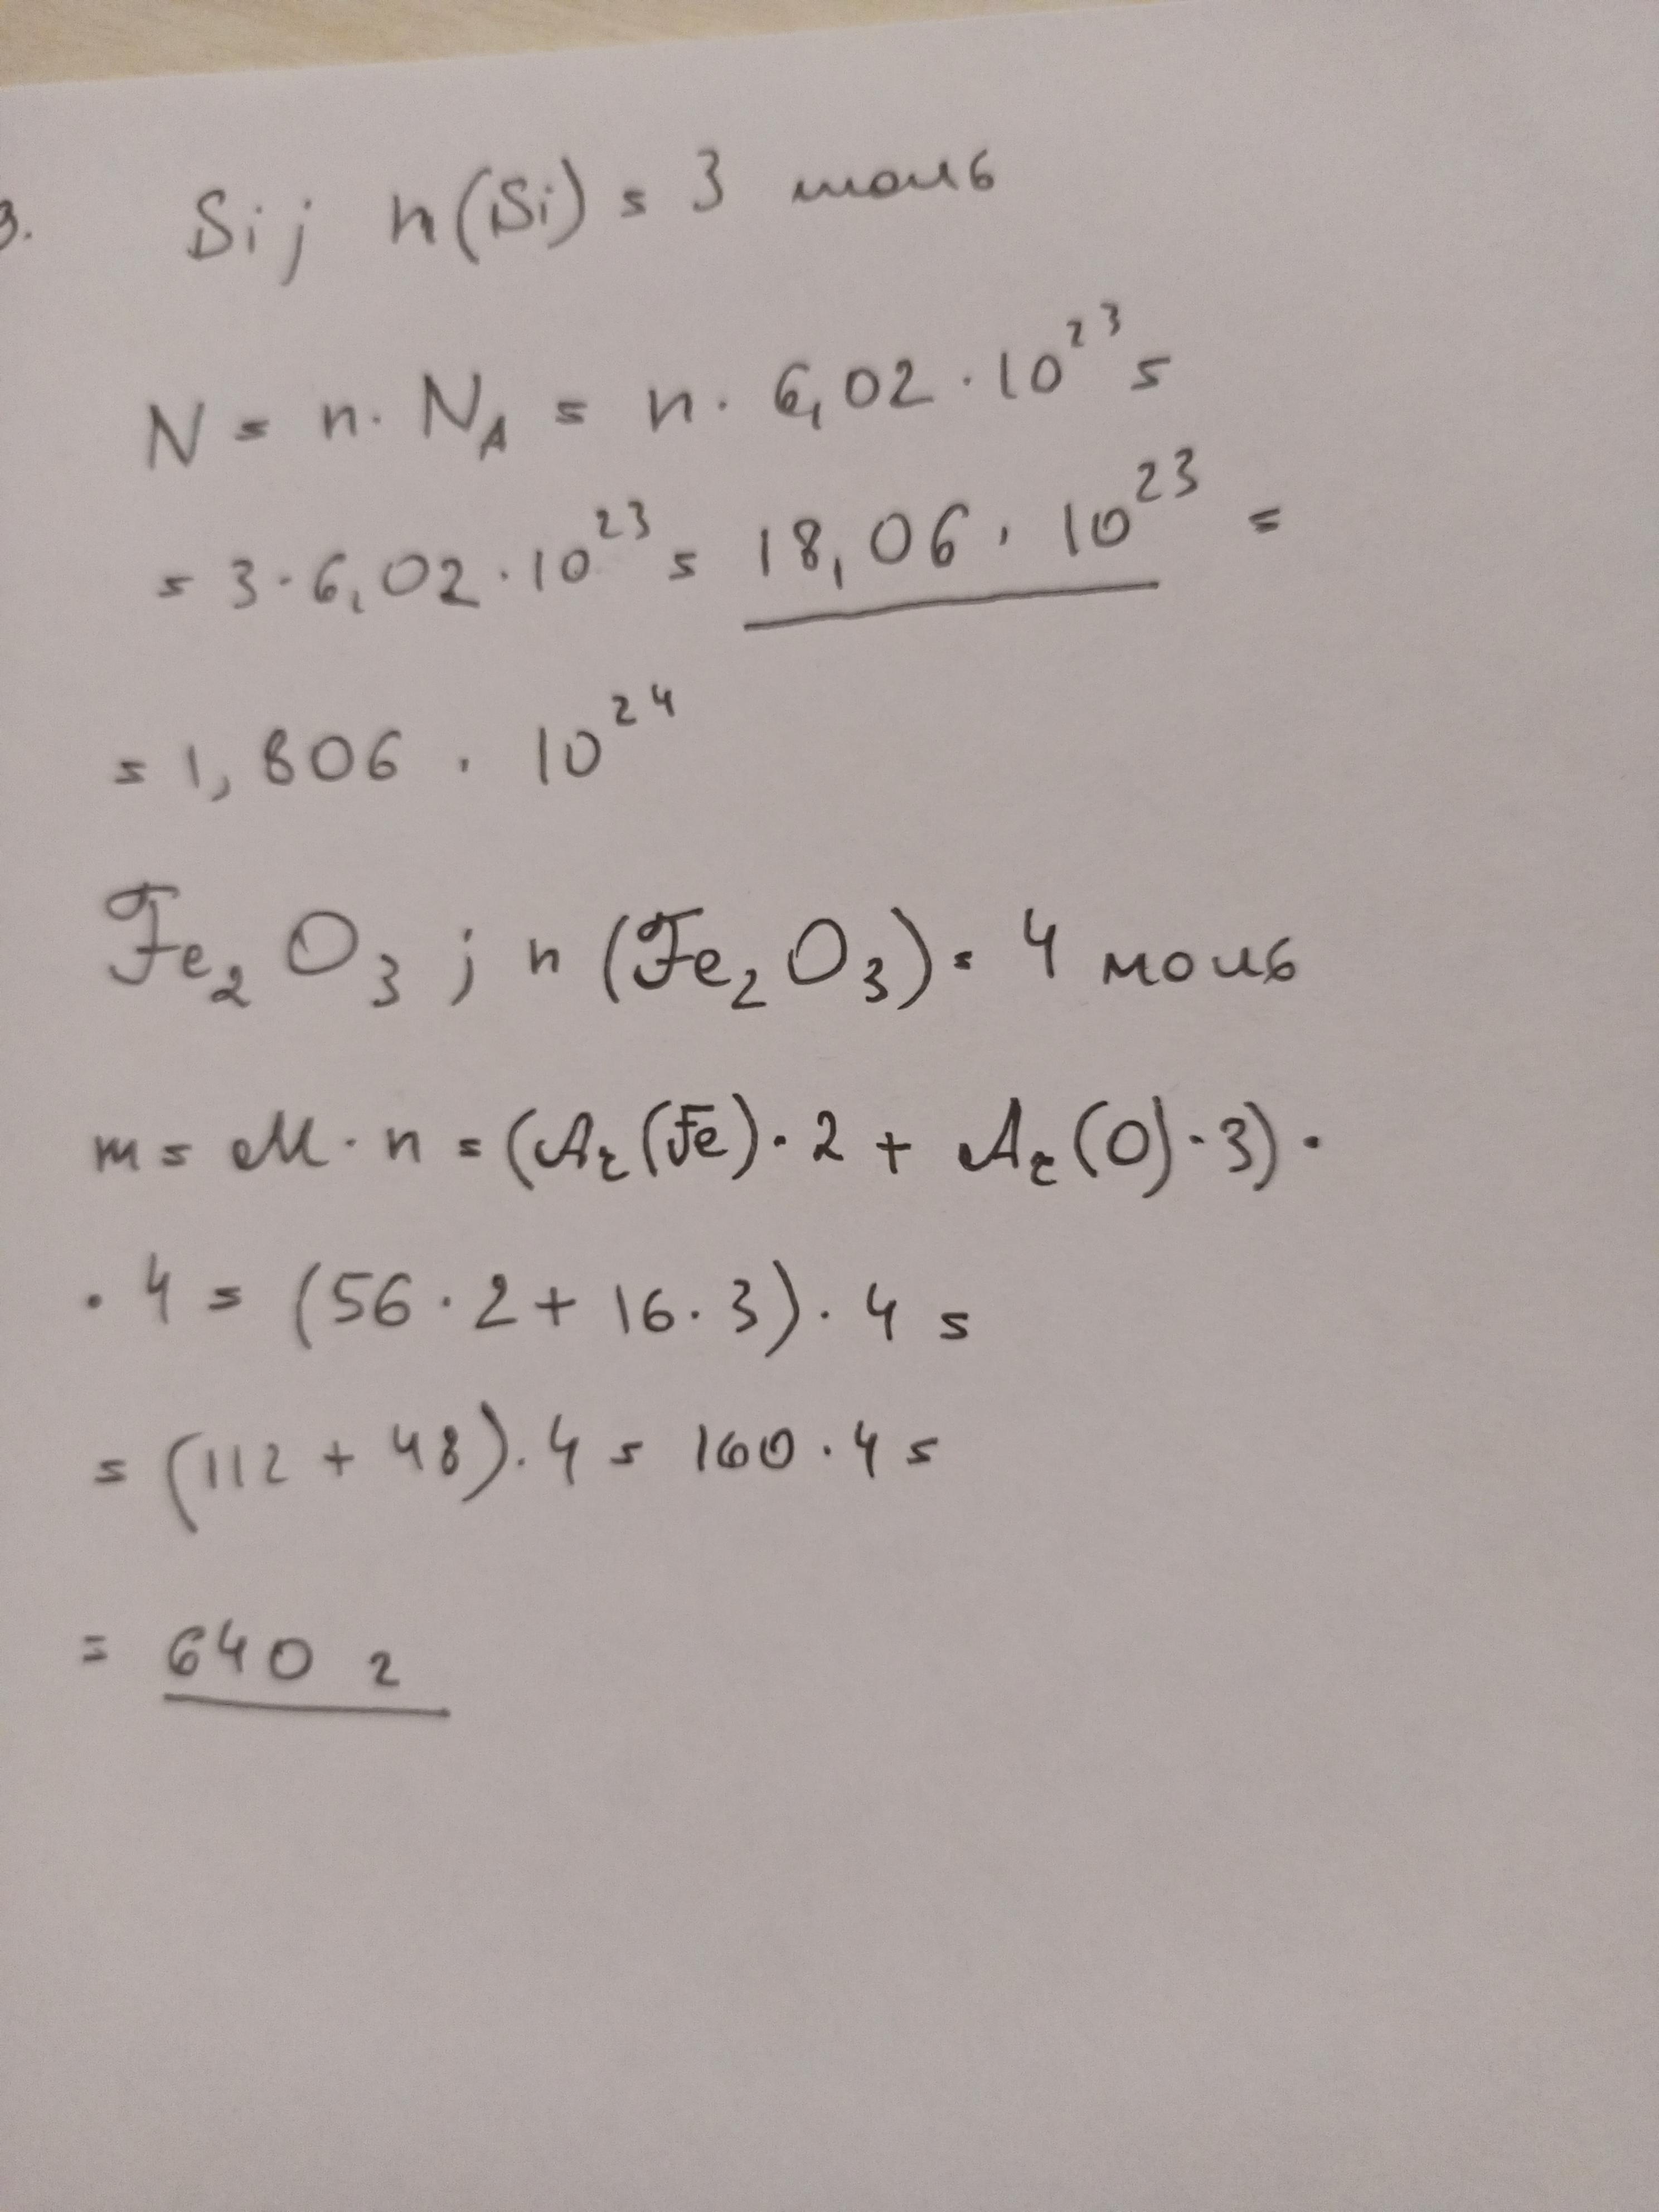 3. Si; n(Si) = 3 моль
N = n · N_A = n · 6,02 · 10²³ =
= 3 · 6,02 · 10²³ = 18,06 · 10²³ =
= 1,806 · 10²⁴
Fe₂O₃; n(Fe₂O₃) = 4 моль
m = M · n = (Ar(Fe) · 2 + Ar(O) · 3) ·
· 4 = (56 · 2 + 16 · 3) · 4 =
= (112 + 48) · 4 = 160 · 4 =
= 640 г